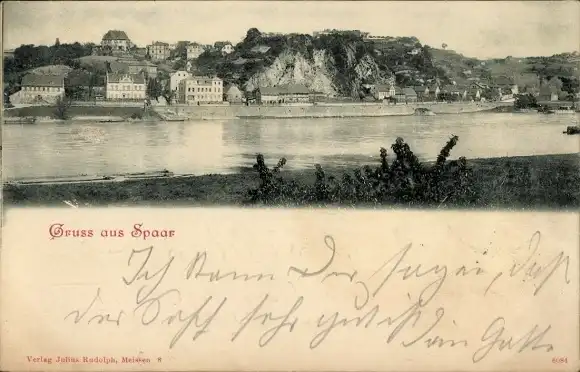 Gruss aus Spaar
Ich kann Dir sagen, daß
der sehr gut ist
Verlag Julius Rudolph, Meissen
6084